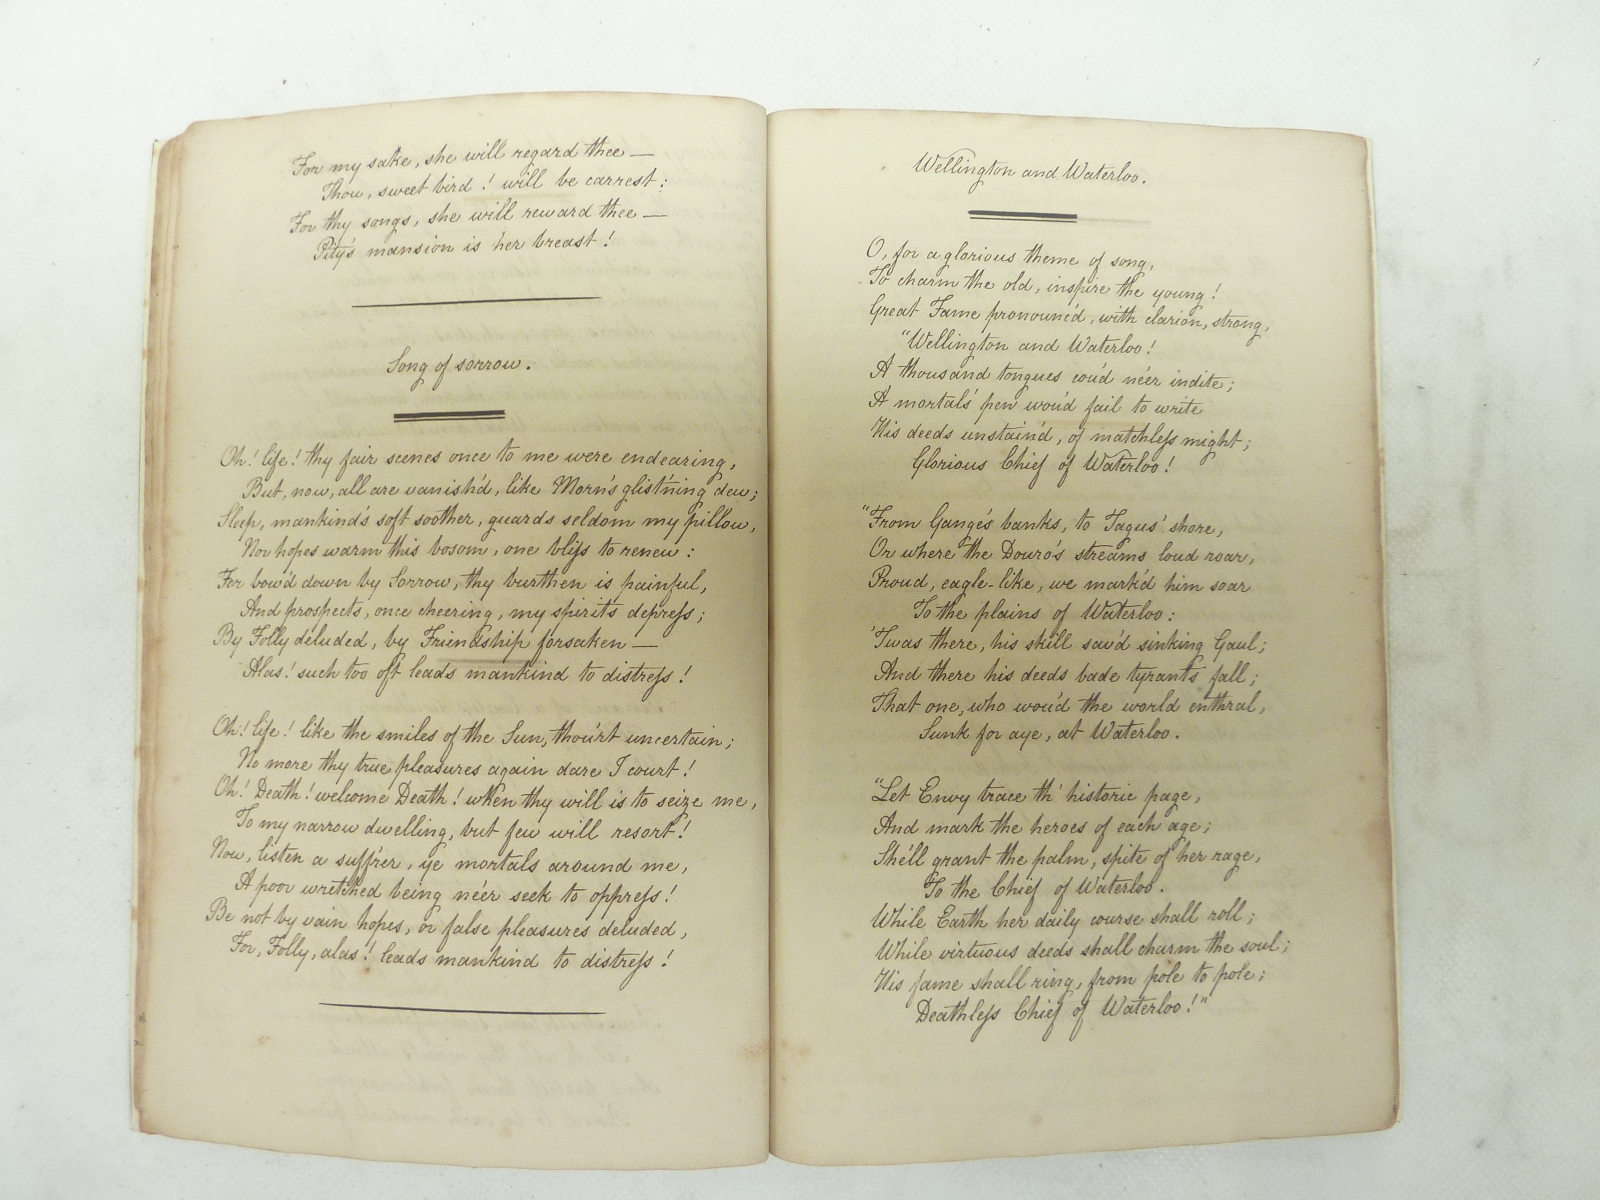 For my sake, she will regard thee —
Thou, sweet bird! will be carrest:
For thy songs, she will reward thee —
Pity's mansion is her breast!
Song of sorrow.
Oh! life! thy fair scenes once to me were endearing,
But, now, all are vanish'd, like Morn's glist'ning dew;
Sleep, mankind's soft soother, guards seldom my pillow,
Nor hopes warm this bosom, one bliſs to renew:
For bow'd down by Sorrow, thy burthen is painful,
And prospects, once cheering, my spirits depreſs;
By Folly deluded, by Friendship forsaken —
Alas! such too oft leads mankind to distreſs!
Oh! life! like the smiles of the Sun, thou'rt uncertain;
No more thy true pleasures again dare I court!
Oh! Death! welcome Death! when thy will is to seize me,
To my narrow dwelling, but few will resort!
Now, listen a suff'rer, ye mortals around me,
A poor wretched being ne'er seek to oppreſs!
Be not by vain hopes, or false pleasures deluded,
For, Folly, alas! leads mankind to distreſs!
Wellington and Waterloo.
O, for a glorious theme of song,
To charm the old, inspire the young!
Great Fame pronounc'd, with clarion, strong,
"Wellington and Waterloo!
A thousand tongues cou'd ne'er indite;
A mortals' pen wou'd fail to write
His deeds unstain'd, of matchleſs might;
Glorious Chief of Waterloo!
"From Gange's banks, to Tagus' shore,
Or where the Douro's streams loud roar,
Proud, eagle-like, we mark'd him soar
To the plains of Waterloo:
'Twas there, his skill sav'd sinking Gaul;
And there his deeds bade tyrants fall;
That one, who wou'd the world enthral,
Sunk for aye, at Waterloo.
"Let Envy trace th' historic page,
And mark the heroes of each age;
She'll grant the palm, spite of her rage,
To the Chief of Waterloo.
While Earth her daily course shall roll;
While virtuous deeds shall charm the soul;
His fame shall ring, from pole to pole;
Deathleſs Chief of Waterloo!"